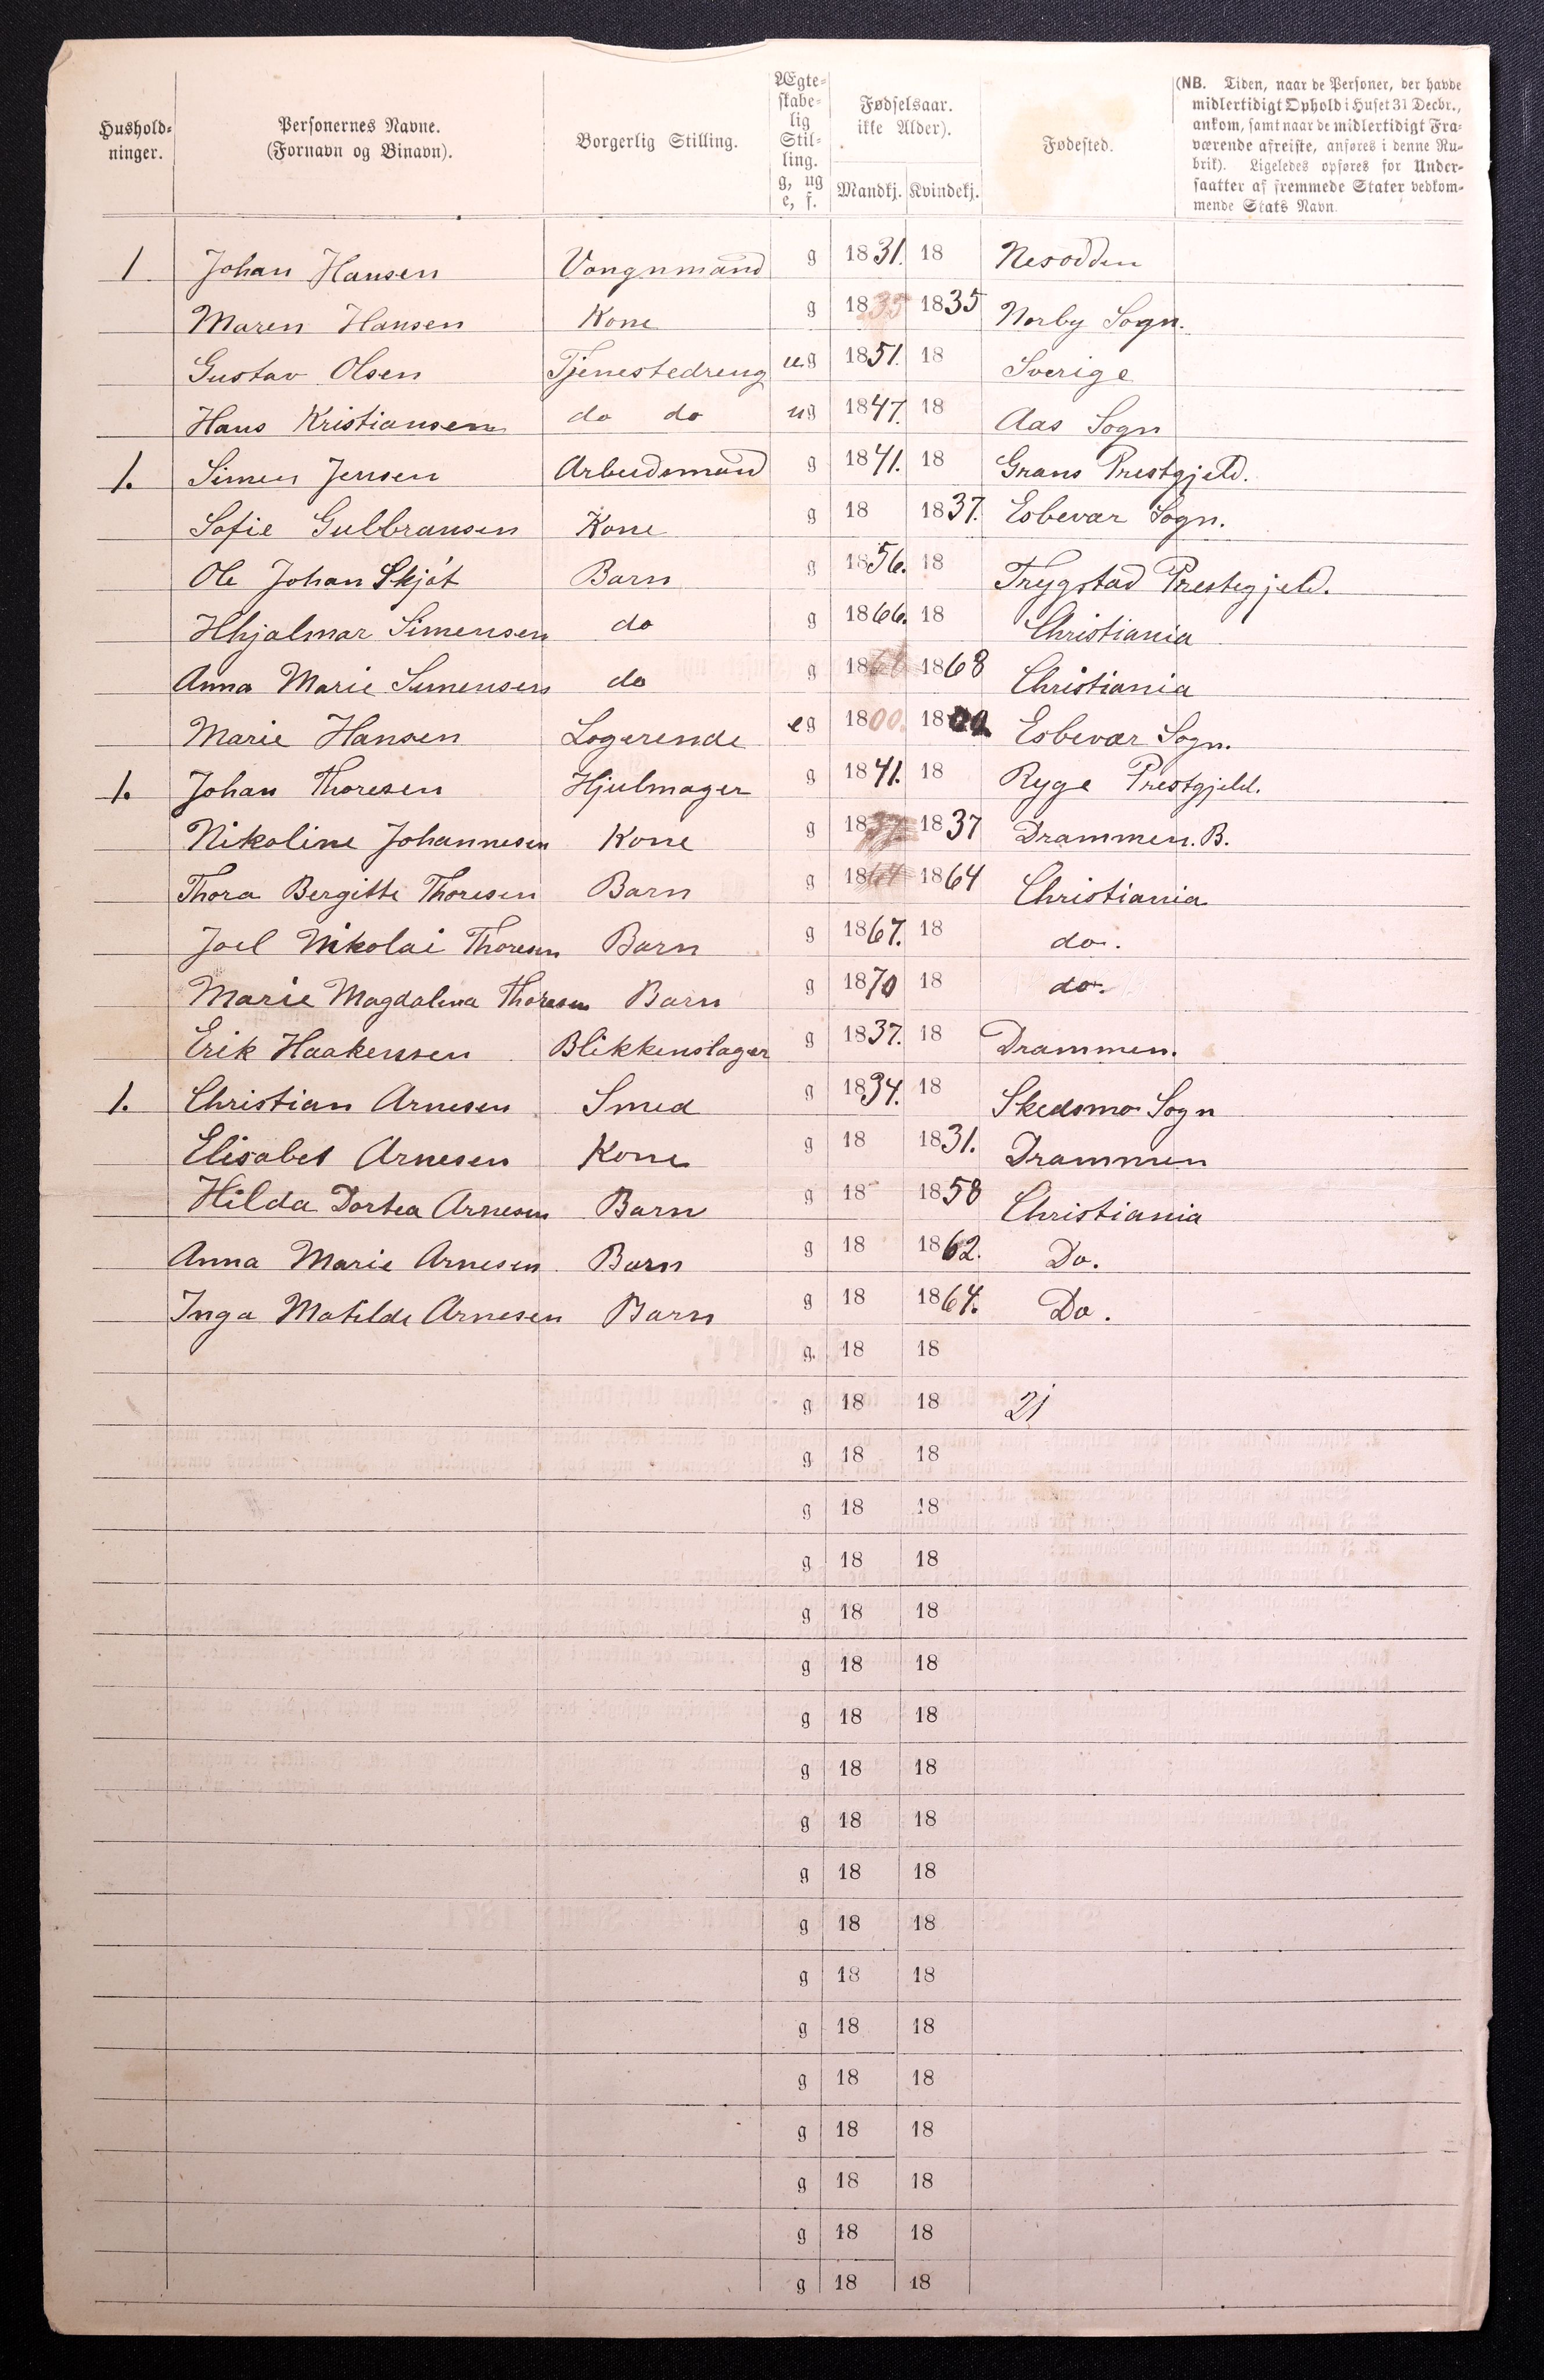 Hushold-
ninger.
Personernes Navne.
(Fornavn og Binavn).
Borgerlig Stilling.
Ægte-
skabe-
lig
Stil-
ling.
g, ug
e, f.
Fødselsaar.
ikke Alder).
Mandkj. Kvindekj.
Fødested.
(NB. Tiden, naar de Personer, der havde
midlertidigt Ophold i Huset 31 Decbr.,
ankom, samt naar de midlertidigt Fra-
værende afreiste, anføres i denne Ru-
brik). Ligeledes opføres for Under-
saatter af fremmede Stater vedkom-
mende Stats Navn.
1 Johan Hansen Vongnmand g 1831. 18 Nesodden
Maren Hansen Kone g 1835 1835 Norby Sogn.
Gustav Olsen Tjenestedreng ug 1851. 18 Sverige
Hans Kristiansen do do ug 1847. 18 Aas Sogn
1. Simen Jensen Arbeidsmand g 1841. 18 Grans Prestgjeld.
Sofie Gulbransen Kone g 18 1837. Esbevar Sogn.
Ole Johan Skjøt Barn g 1856. 18 Trygstad Prestegjeld.
Hhjalmar Simensen do g 1866. 18 Christiania
Anna Marie Simensen do g 1868 1868 Christiania
Marie Hansen Logerende eg 1800. 1800. Esbevar Sogn.
1. Johan Thoresen Hjulmager g 1841. 18 Ryge Prestgjeld.
Nikoline Johannesen Kone g 1837 1837 Drammen. B.
Thora Bergitte Thoresen Barn g 1864 1864 Christiania
Joel Nikolai Thoresen Barn g 1867. 18 do.
Marie Magdalena Thoresen Barn g 1870 18 do.
Erik Haakenssen Blikkenslager g 1837. 18 Drammen.
1. Christian Arnesen Smed g 1834. 18 Skedsmo Sogn
Elisabet Arnesen Kone g 18 1831. Drammen
Hilda Dortea Arnesen Barn g 18 1858 Christiania
Anna Marie Arnesen Barn g 18 1862. Do.
Inga Matilde Arnesen Barn g 18 1864. Do.
g. 18 18
g 18 18 21
g 18 18
g 18 18
g 18 18
g 18 18
g 18 18
g 18 18
g 18 18
g 18 18
g 18 18
g 18 18
g 18 18
g 18 18
g 18 18
g 18 18
g 18 18
g 18 18
g 18 18